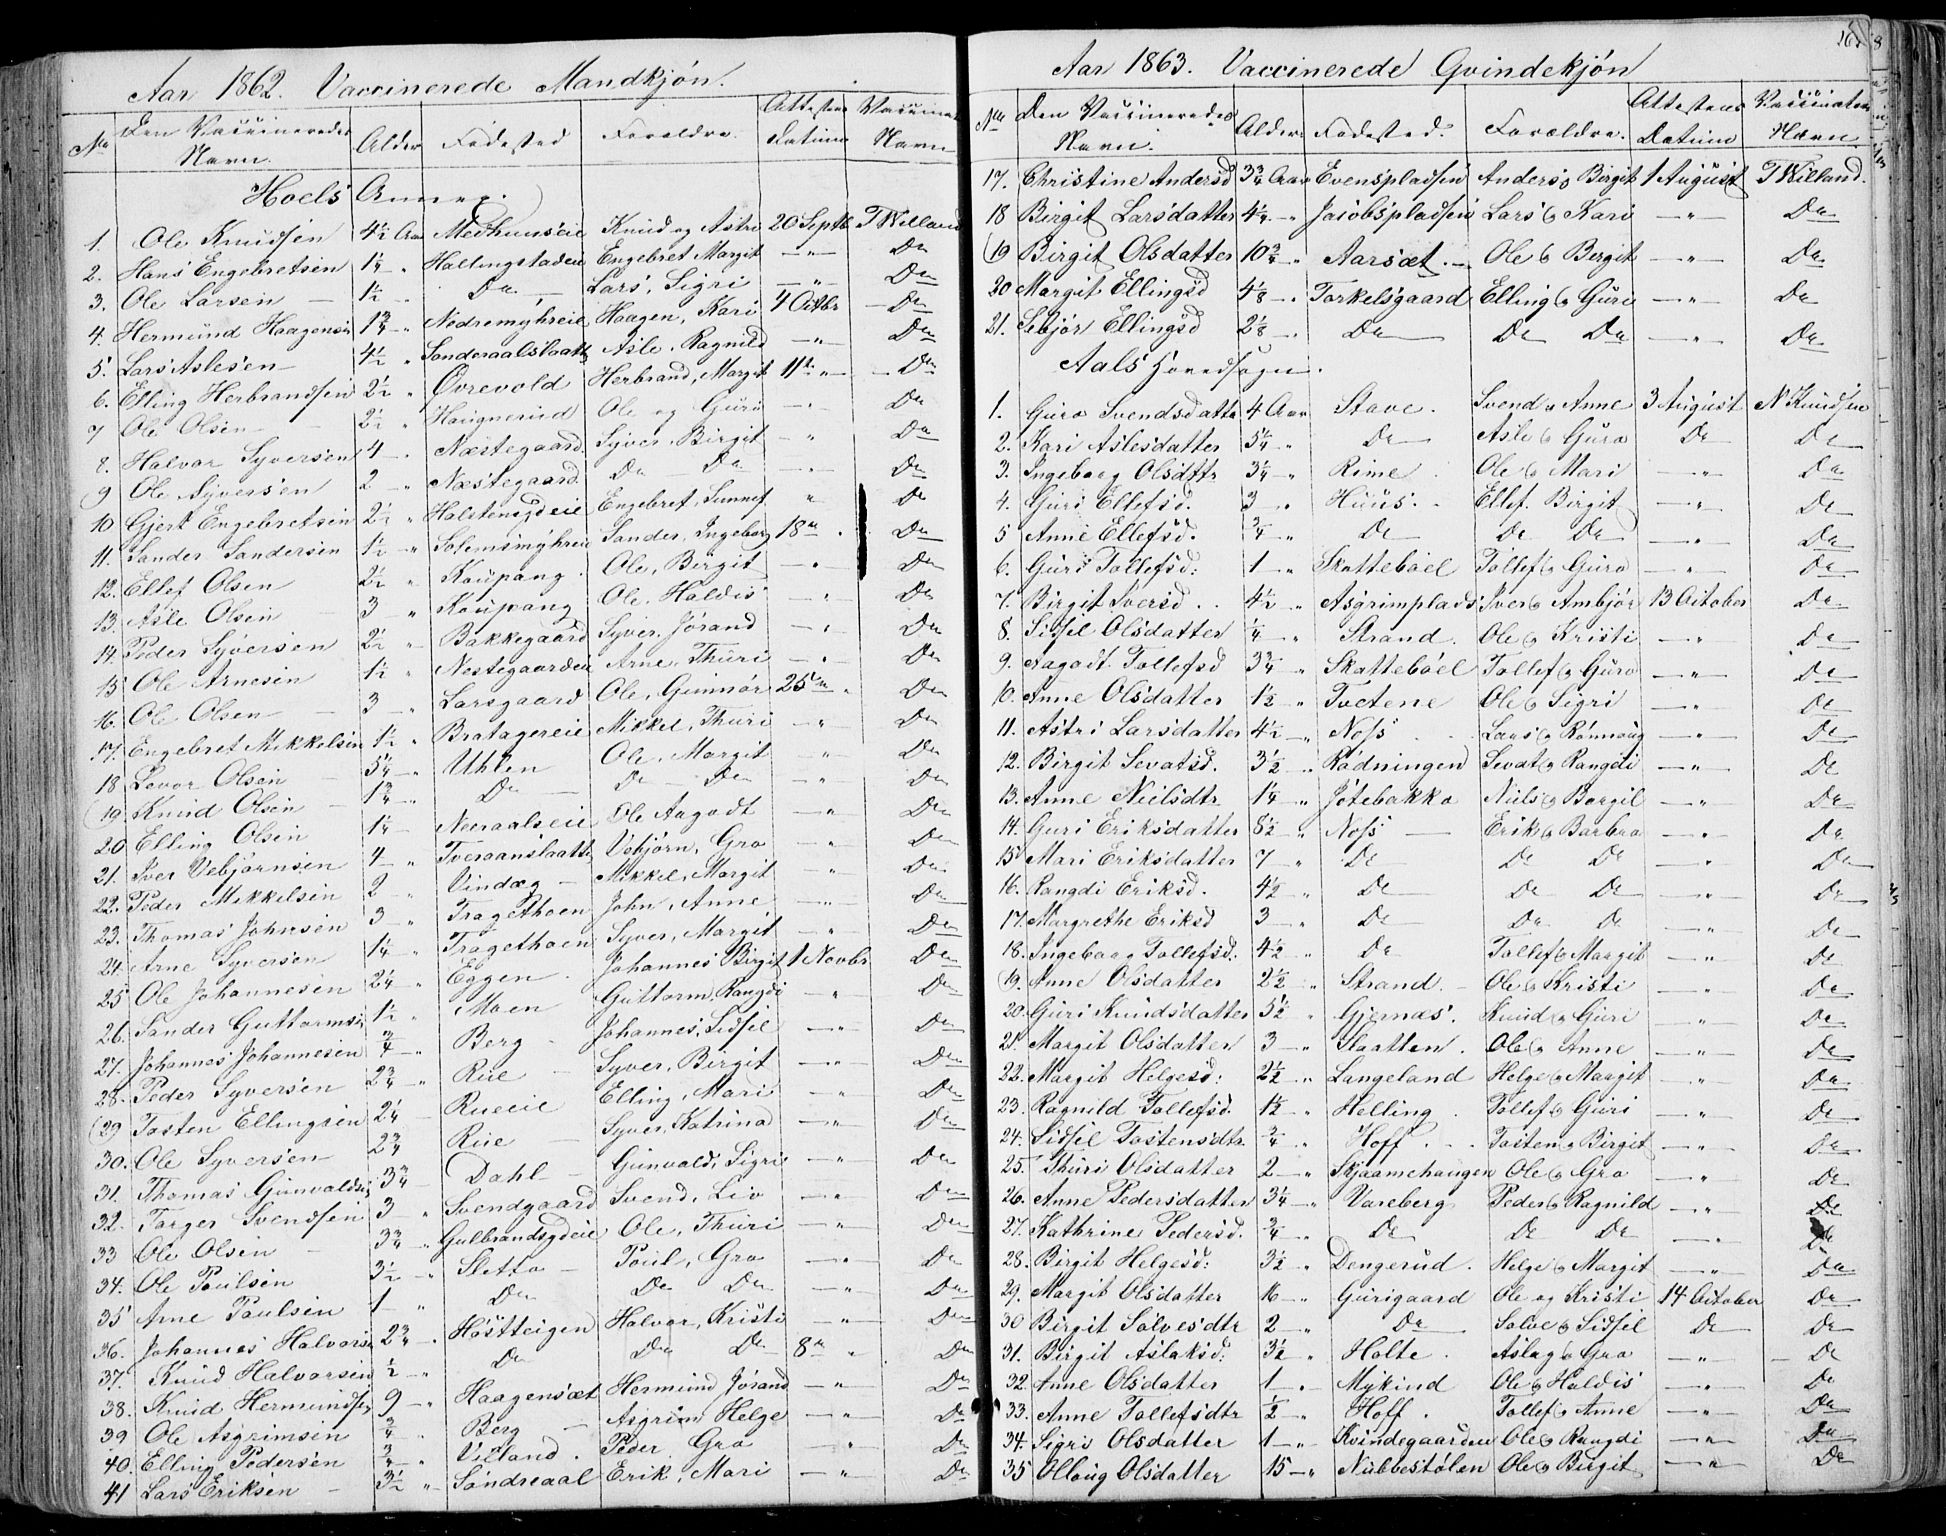 Aar 1862. Vaccinerede Mandkjøn.
No Den Vaccineredes Navn. Alder Fødested Forældre. Attestens Datum Vaccinat Navn
Hoels Annex.
1. Ole Knudsen 4½ Aar Medhuuseie Knud og Astri 20 Septb T Willand
2. Hans Engebretsen 1¼ " Hallingstadeie Engebret Margit — " — Do
3. Ole Larsen 1½ " Do Lars, Sigri — " — Do
4. Hermund Haagensen 1¾ " Nedremyhreie Haagen, Kari 4 Octbr Do
5. Lars Aslesen 4½ " Sonderaalslaatt Asle. Ragnild — " — Do
6. Elling Herbrandsen 2½ " Øvrevold Herbrand, Margit 11te " Do
7 Ole Olsen 2½ " Haugnerud Ole og Guro — " — Do
8. Halvor Syversen 4 " Næstegaard Syver, Birgit — " Do
9 Ole Syversen 2 " Næstegaard Do Do — " — Do
10 Gjert Engebretsen 2½ " Halstensgdeie Engebret, Sunnef " Do
11. Sander Sandersen 1½ " Solemsmyhreie Sander, Ingeborg 18de " Do
12. Ellef Olsen 2½ " Kaupang Ole, Birgit — " Do
13. Asle Olsen 3 " Kaupang Ole. Haldis — " Do
14. Peder Syversen 2½ " Bakkegaard Syver. Jørand — " Do
15 Ole Arnesen 1½ " Nestegaardeie Arne, Thuri — " Do
16. Ole Olsen 3 " Larsgaard Ole, Gunnor 25de " Do
17. Engebret Mikkelsen 1½ " Bratagereie Mikkel, Thuri — " Do
18 Levor Olsen 5¼ " Uhlen Ole, Margit " Do
19 Knud Olsen 1¾ " Do Do Do — " Do
20 Elling Olsen 1¼ " Neeraalseie Ole Aagodt — " Do
21. Iver Vebjørnsen 4 " Tveraanslaatt Vebjørn, Gro — " Do
22. Peder Mikkelsen 2 " Vindæg Mikkel, Margit " Do
23. Thomas Johnsen 3 " Tragethoen John, Anne — " Do
24. Arne Syversen 1¼ " Tragethoen Syver, Margit — " Do
25 Ole Johannesen 2¼ " Eggen Johannes Birgit 1 Novbr Do
26. Sander Guttormsen 1½ " Moen Guttorm, Rangdi " Do
27. Johannes Johannesen ¾ " Berg Johannes, Sidsel — " Do
28. Peder Syversen 2¾ " Rue Syver, Birgit — " Do
29 Tosten Ellingsen 2¼ Rueeie Elling, Mari — " Do
30. Ole Syversen 2¾ Rue Syver, Katrina — " Do
31. Thomas Gunvaldsen 3¾ Dahl Gunvald, Sigri — " Do
32. Torger Svendsen 3 " Svendgaard Svend, Liv — " Do
33 Ole Olsen 3¾ " Gulbrandsgdeie Ole, Thuri — " Do
34. Ole Paulsen 3½ " Sletto Poul, Gro — " Do
35 Arne Paulsen 1 " Do Do Do — " Do
36. Johannes Halvorsen 2¾ " Høstteigen Halvor, Kristi — " Do
37. Knud Halvorsen ½ " Do Do Do 8de " Do
38. Knud Hermundsen 9 " Haagensæt Hermund Jørand — " Do
39 Ole Asgrimsen ¾ " Berg Asgrim Helge — " Do
40. Elling Pedersen ¾ " Villand. Peder, Gro " Do
41 Lars Eriksen 3½ " Søndreaal Erik, Mari — " Do
Aar 1863. Vaccinerede Qvindekjøn
No Den Vaccineredes Navn. Alder Fødested. Forældre. Attestens Datum Vaccinatørs Navn.
17. Christine Andersd 3¾ Aar Evenspladsen Anders og Birgit 1 August T Willand.
18 Birgit Larsdatter 4¼ " Jacobspladsen Lars og Kari — " — Do
19 Birgit Olsdatter 10¾ " Aarsæt. Ole og Bergit — " — Do
20 Margit Ellingsd 4⅛ " Torkelsgaard Elling og Guri — " — Do
21. Sebjør Ellingsd 2⅛ " Do Do Do — " — Do
Aals Hovedsogn.
1. Guro Svendsdatte 4 Aar Stave. Svend og Anne 3 August N Knudsen
2. Kari Aslesdatter 5¼ " Do Asle og Guro Do Do
3. Ingeborg Olsdttr 3¼ " Rime Ole og Mari — " Do
4. Guri Ellefsd. 3 " Huus. Ellef. Birgit — " Do
5 Anne Ellefsd. ¾ " Do Do Do — " Do
6. Guri Tollefsd: 1 " Skattebøel Tollef og Guro — " Do
7. Birgit Iversd. 4½ " Asgrimplads Iver og Ambjør 13 October Do
8. Sidsel Olsdatter ¼ " Strand. Ole og Kristi — " Do
9. Aagodt Tollefsd 3¾ " Skattebøel Tollef og Guro — " Do
10. Anne Olsdatter 1½ " Tvetene Ole og Sigri — " Do
11. Astri Larsdatter 4½ " Noss Lars og Rønnaug — " Do
12. Birgit Sevatsd. 3½ " Rødningen Sevat og Rangdi — " Do
13. Anne Nielsdtr 1¼ " Jøtebakko Niels og Borgil — " Do
14. Guri Eriksdatter 8½ " Noss Erik og Barbro — " Do
15 Mari Eriksdatter 7 " Do Do Do — " Do
16. Rangdi Eriksd. 4½ " Do Do Do — " Do
17. Margrethe Eriksd 3 " Do Do Do — " Do
18. Ingeborg Tollefsd. 4½ " Do Tollef og Margit — " Do
19. Anne Olsdatter 2½ " Strand Ole og Kristi — " Do
20. Guri Knudsdatter 5½ " Gjernæs. Knud og Guri — " Do
21. Margit Olsdatter 3 " Slaatten. Ole og Anne — " Do
22. Margit Helgesd: 2½ " Langeland Helge og Margit — " Do
23. Ragnild Tollefsd. 1½ " Helling Tollef og Guri — " Do
24. Sidsel Tostensdtr. ¾ " Hoff. Tosten og Birgit — " Do
25. Thuri Olsdatter 2 " Skjaamehaugen Ole og Gro " Do
26. Anne Pedersdatter 3¼ " Vareberg Peder og Ragnild — " Do
27. Kathrine Pedersd. ¾ " Do Do Do — " Do
28. Birgit Helgesd: 3½ " Dengerud. Helge og Margit — " Do
29. Margit Olsdatter 16 " Gurigaard Ole og Kristi 14 October Do
30 Birgit Solvesdtr 2 " Do Solve og Sidsel Do Do
31. Birgit Aslaksd: 3½ " Holte. Aslag og Gro " Do
32. Anne Olsdatter 1 " Mykind Ole og Haldis — " Do
33. Anne Tollefsdtr ½ " Hoff. Tollef og Anne — " Do
34. Sigri Olsdatter 1 " Kvindegaarden Ole og Rangdi — " Do
35 Ollaug Olsdatter 15 " Nubbestølen Ole og Birgit — " Do